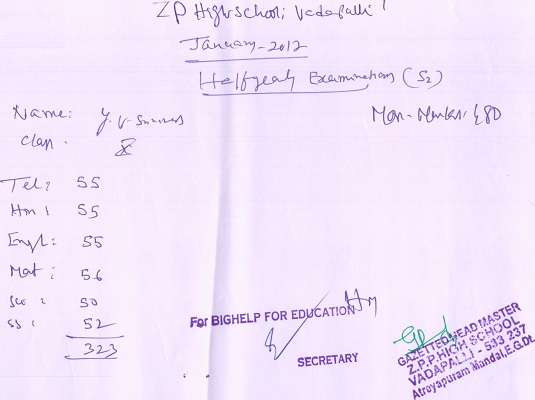 ZP High School, Vadapalli
January-2012
Halfyearly Examinations (S2)
Name: Y. V. Srinivas
Max-Marks: 480
Class. X
Tel: 55
Hn: 55
Engl: 55
Mat: 56
Sci: 50
SS: 52
323
For BIGHELP FOR EDUCATION
SECRETARY
GAZETTED HEAD MASTER
Z.P.P. HIGH SCHOOL
VADAPALLI - 533 237
Atreyapuram Mandal, E.G.Dt.